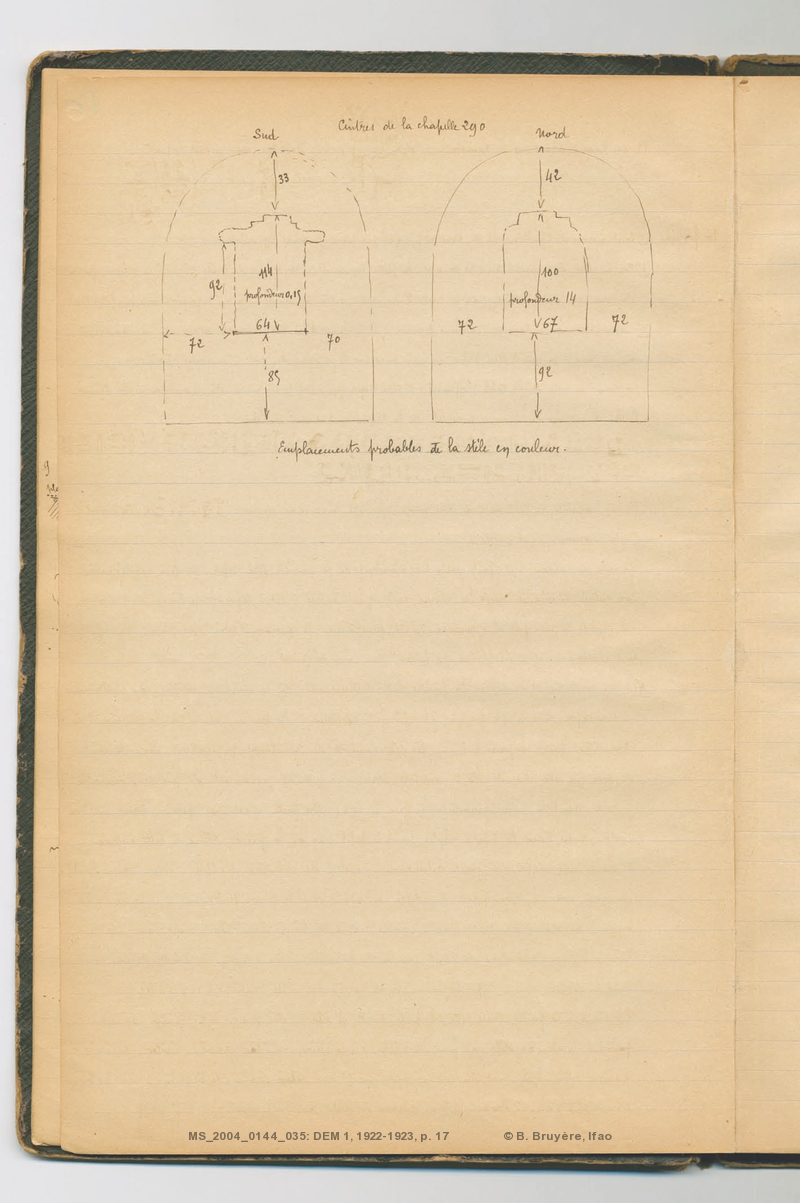 Cintres de la chapelle 290
Sud
Nord
33
42
92
114
profondeur 0,15
64
72
70
85
100
profondeur 14
72
67
72
92
Emplacements probables de la stèle en couleur.
9
MS_2004_0144_035: DEM 1, 1922-1923, p. 17
© B. Bruyère, Ifao